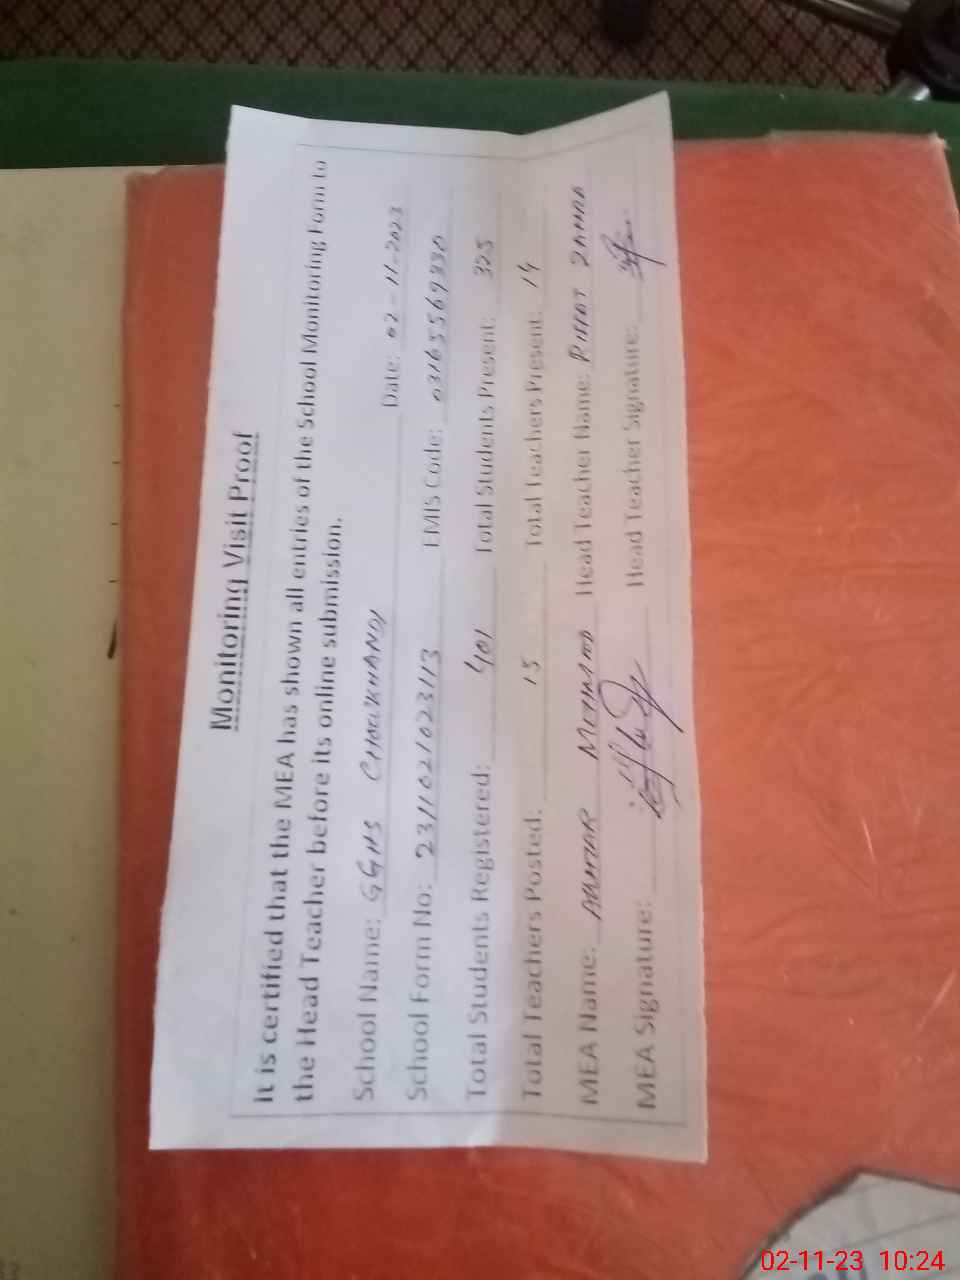 Monitoring Visit Proof
It is certified that the MEA has shown all entries of the School Monitoring Form to
the Head Teacher before its online submission.
School Name: GGHS Date: 02-11-2023
School Form No: 231102102311 3 EMIS Code: 03165569330
Total Students Registered: 401 Total Students Present: 325
Total Teachers Posted: 15 Total Teachers Present: 14
MEA Name: MEHMOOD Head Teacher Name: RIFFAT
MEA Signature: Head Teacher Signature:
02-11-23 10:24